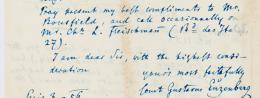 Pray present my best compliments to Mr.
Bousfield, and call occasionally on
Mr. Chs. L. Fleischman (Bd. des
27).
I am dear Sir, with the highest consi-
deration
yours most faithfully
Count Gustavus Enzenberg